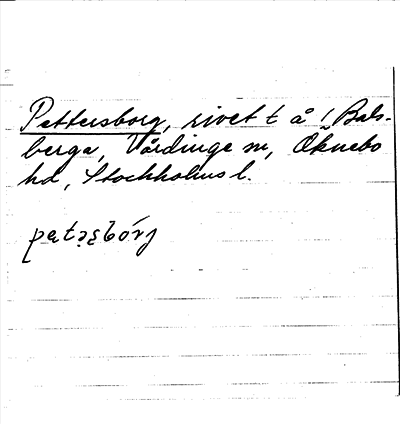 Pettersborg, rivet t å / Bals-
berga, Vårdinge sn, Öknebo
hd, Stockholms l.